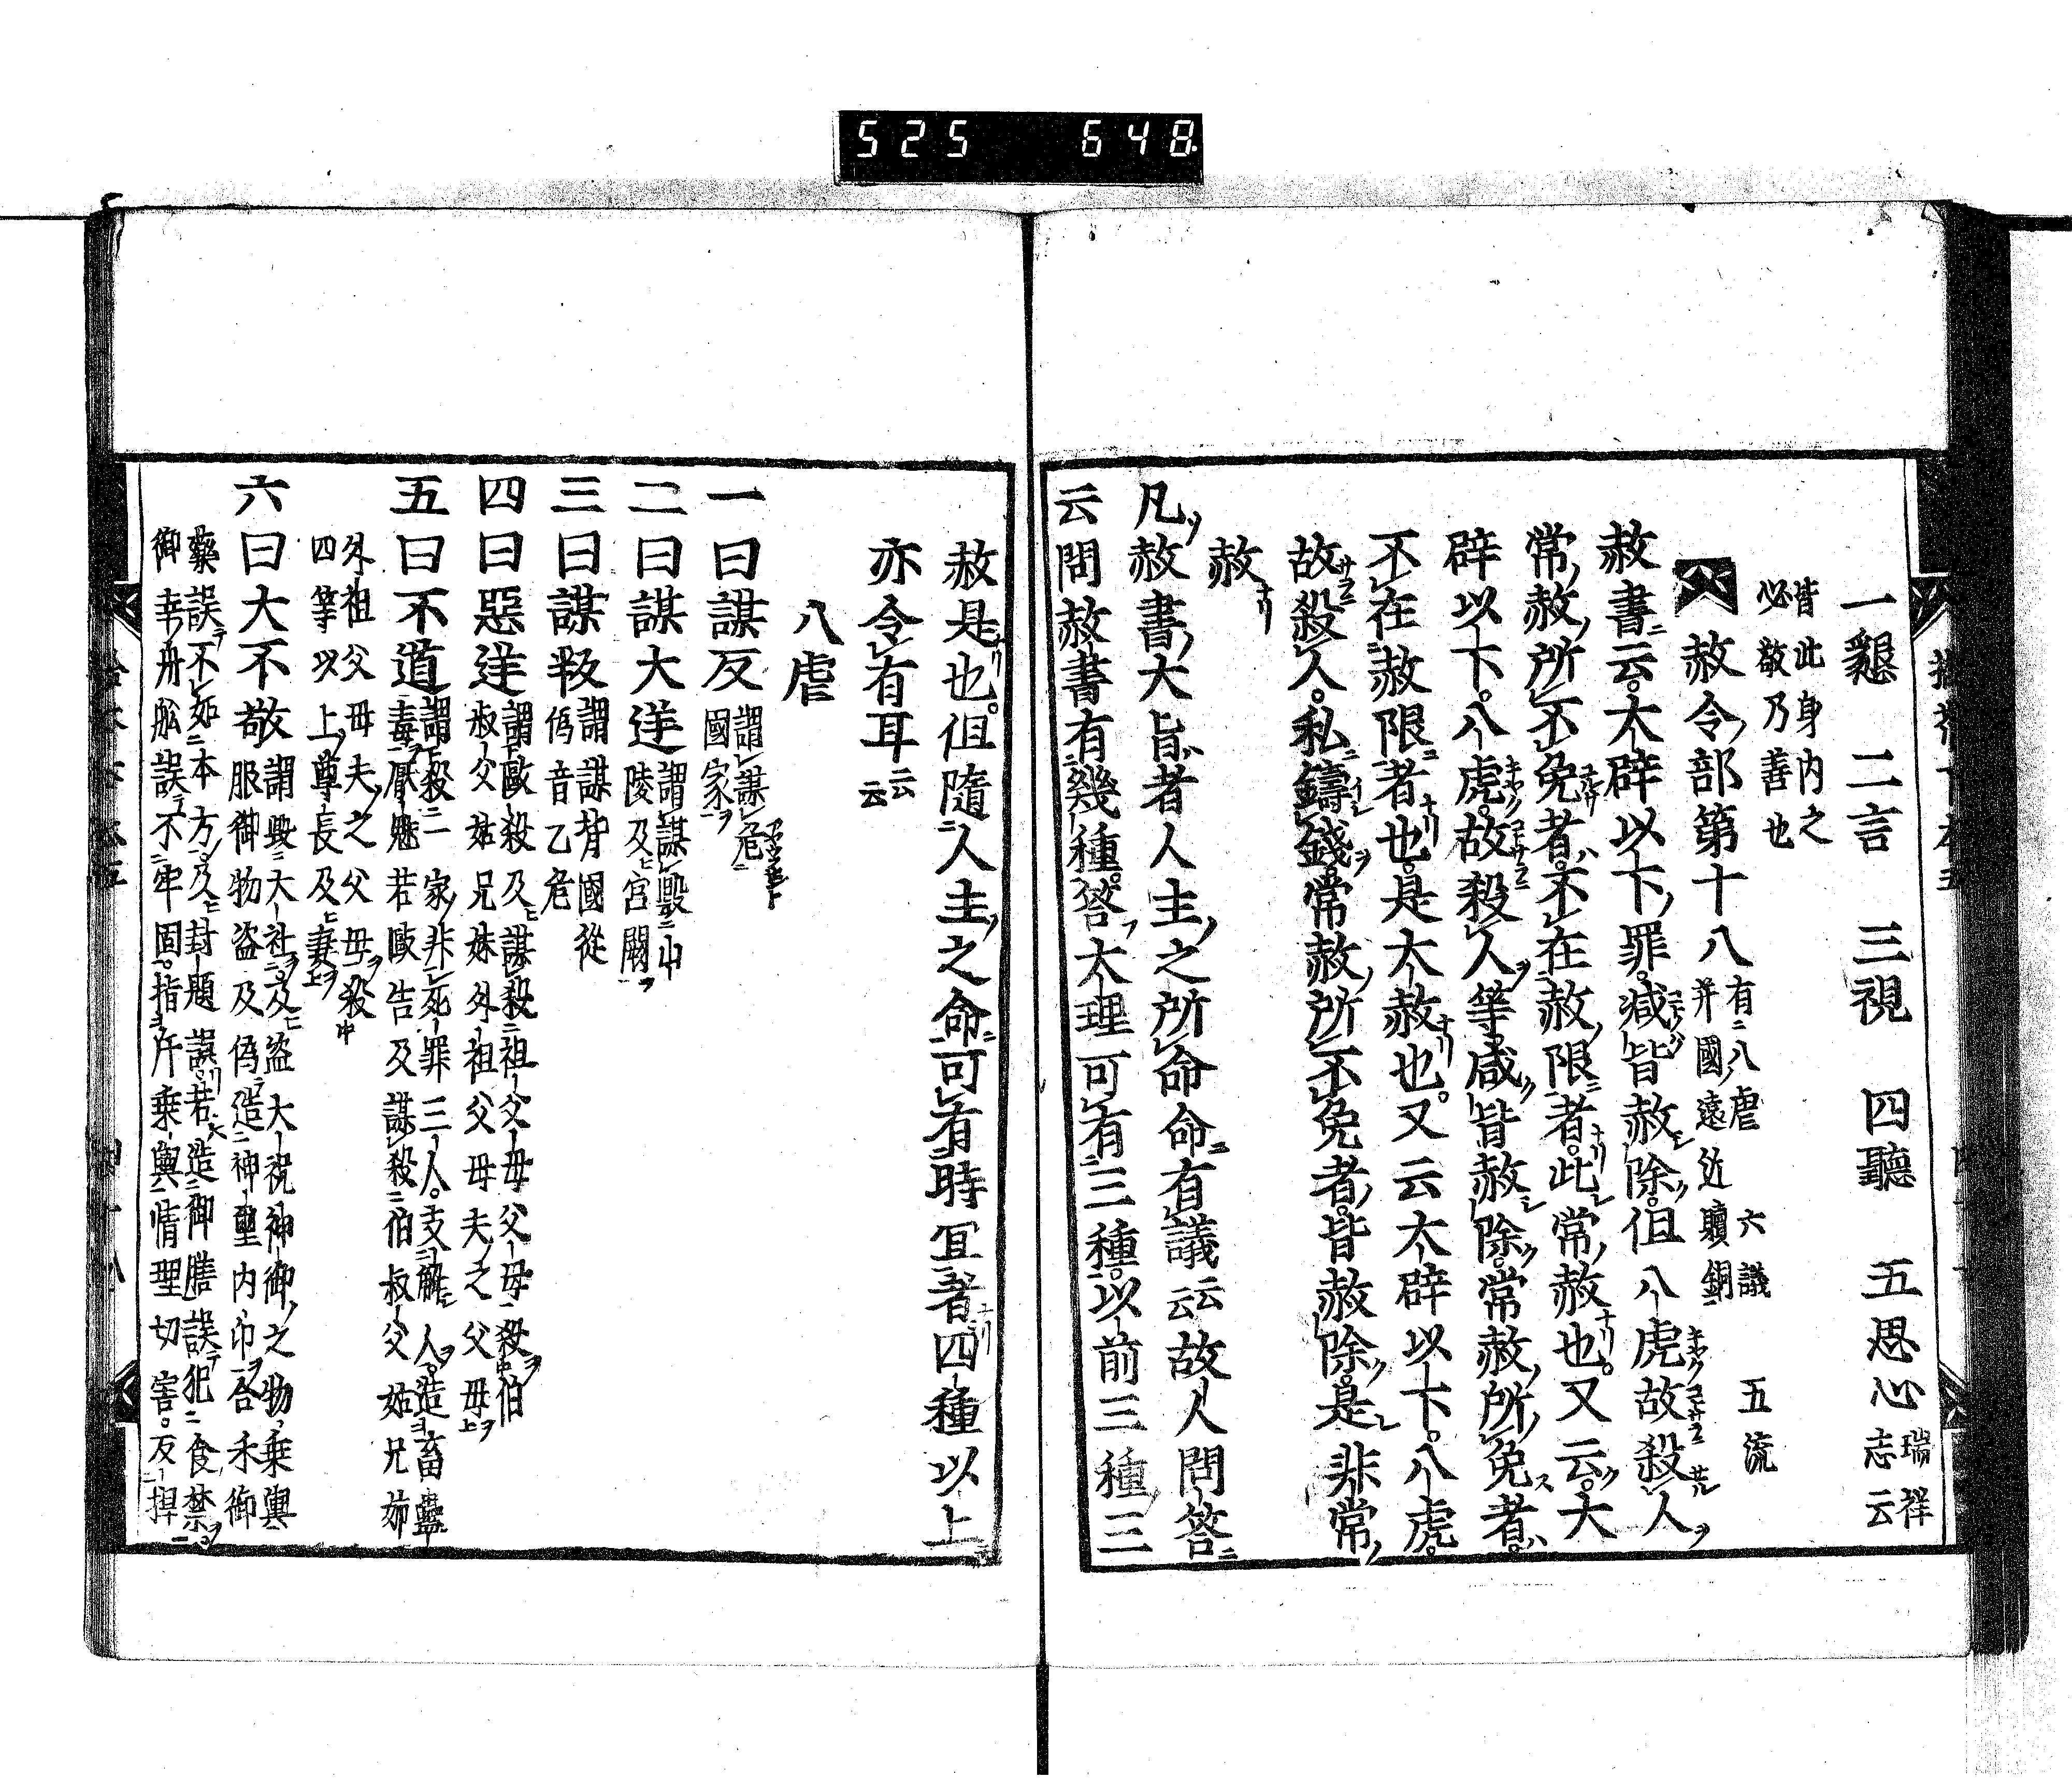 525 648
一懇 二言 三視 四聽 五思心 瑞祥志云
皆此身内之
必敬乃善也
赦令部第十八 有八虐 六議 五流
并國遠近贖銅
赦書云大辟以下罪減皆赦除但八虎故殺人
常赦所不免者不在赦限者此常赦也又云大
辟以下八虎故殺人等咸皆赦除常赦所免者
不在赦限者也是大赦也又云大辟以下八虎
故殺人私鑄錢常赦所不免者皆赦除是非常
赦
凡赦書大旨者人主之所命命有議云云故人問答
云問赦書有幾種答大理可有三種以前三種三
赦是也但隨人主之命可有時冝著四種以上
亦令有耳云云
八虐
一曰謀反 謂謀危
國家
二曰謀大逆 謂謀毀山
陵及宮闕
三曰謀叛 謂謀背國從
偽音乙危
四曰惡逆 謂毆殺及謀殺祖父母父母殺伯
叔父姑兄姊外祖父母夫之父母
五曰不道 謂殺一家非死罪三人支解人造畜蠱
毒厭魅若毆告及謀殺伯叔父姑兄姉
外祖父母夫之父母殺
四等以上尊長及妻
六曰大不敬 謂毀大社及盗大祝神御之物乗輿
服御物盗及偽造神璽内印合禾御
藥誤不如本方及封題誤若造御膳誤犯食禁
御幸舟舩誤不牢固指斥乗輿情理切害及捍